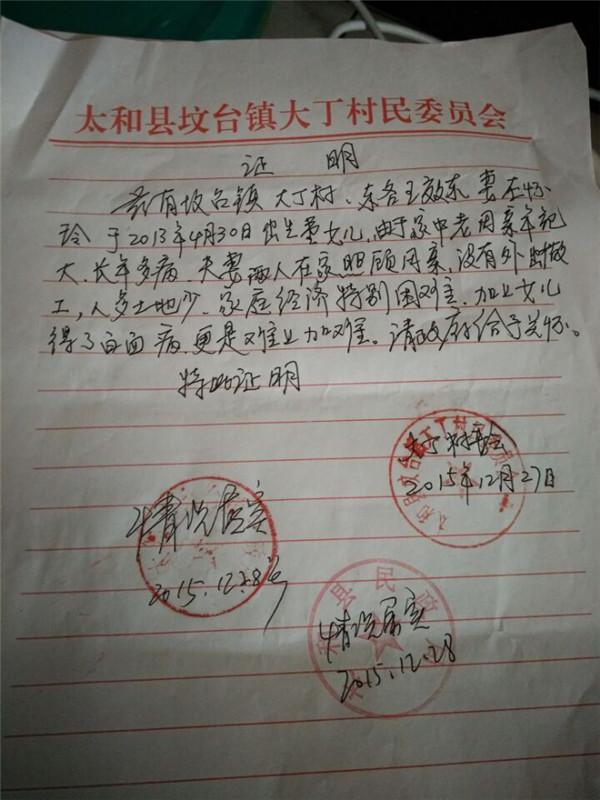 太和县坟台镇大丁村民委员会
证 明
兹有坟台镇大丁村、东各王效东妻在怀
玲于2013年4月30日出生壹女儿,由于家中老母亲年纪
大、长年多病 夫妻两人在家照顾母亲,没有外出做
工,人多土地少、家庭经济特别困难、加上女儿
得了白血病,更是难上加难。请政府给予关怀。
特此证明
大丁村
2015年12月27日
情况属实
2015.12.28
情况属实
2015.12.28
县民政